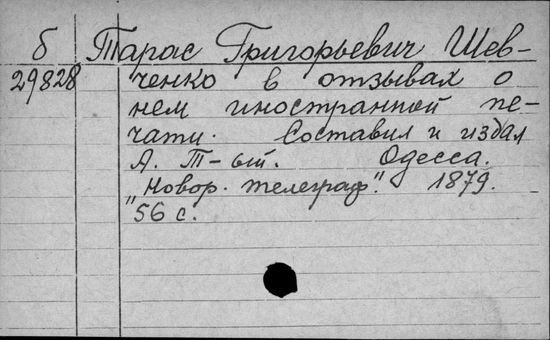 б Тарас Григорьевич Шев-
29828 ченко в отзывах о
нем иностранной пе-
чати. Составил и издал
А. Т-ый. Одесса.
"Новор. телеграф". 1879.
56 с.